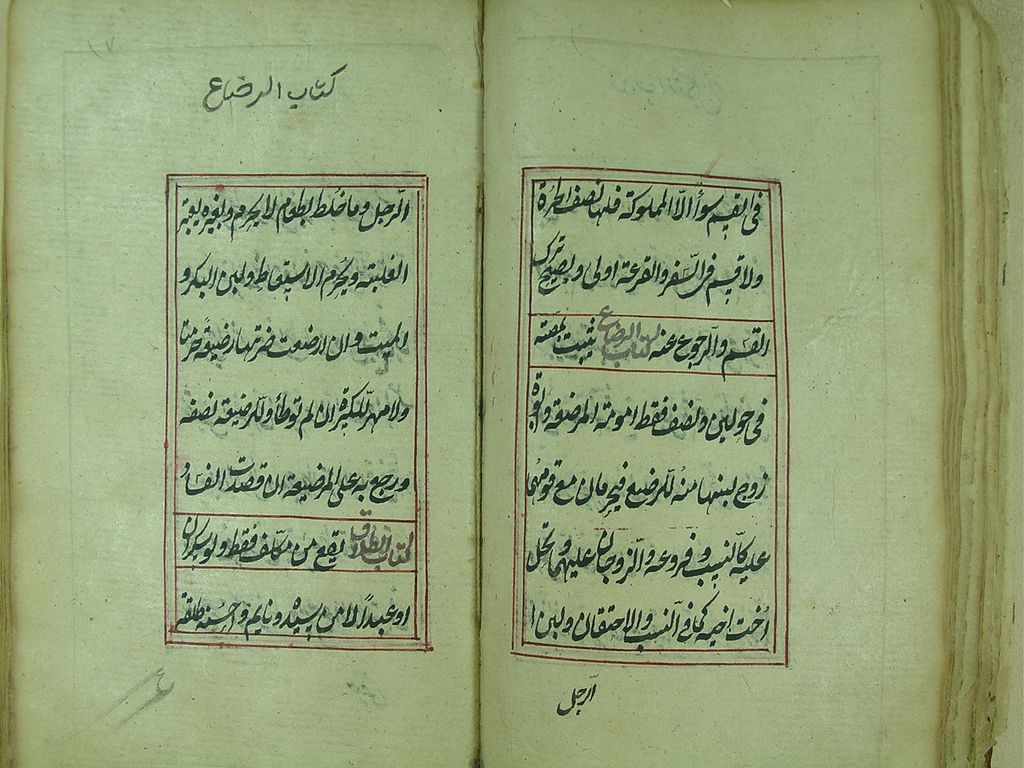 فى القسم سواء الا المملوكة فلها نصف الحرة
ولا قسم فى السفر والقرعة اولى ويصح ترك
القسم والرجوع عنه كتاب الرضاع تثبت بمصة
فى حولين ونصف فقط امومة المرضعة وابوة
زوج لبنها منه للرضيع فيحرمان مع قومهما
عليه كالنسب وفروعه والزوجان عليهما وتحل
اخت اخيه كما فى النسب والاحتقان ولبن ا
الرجل
كتاب الرضاع
الرجل وما خلط بطعام لا يحرم وبغيره يعتبر
الغلبة ويحرم الاستعاط ولبن البكر و
الميت وان ارضعت ضرتها رضيعة حرمتا
ولا مهر للكبيرة ان لم توطأ وللرضيعة نصفه
ورجع به على المرضعة ان قصدت الفساد
كتاب الطلاق يقع من مكلف فقط ولو سكران
او عبدا لا من سيده ونايم واحسنه طلقة